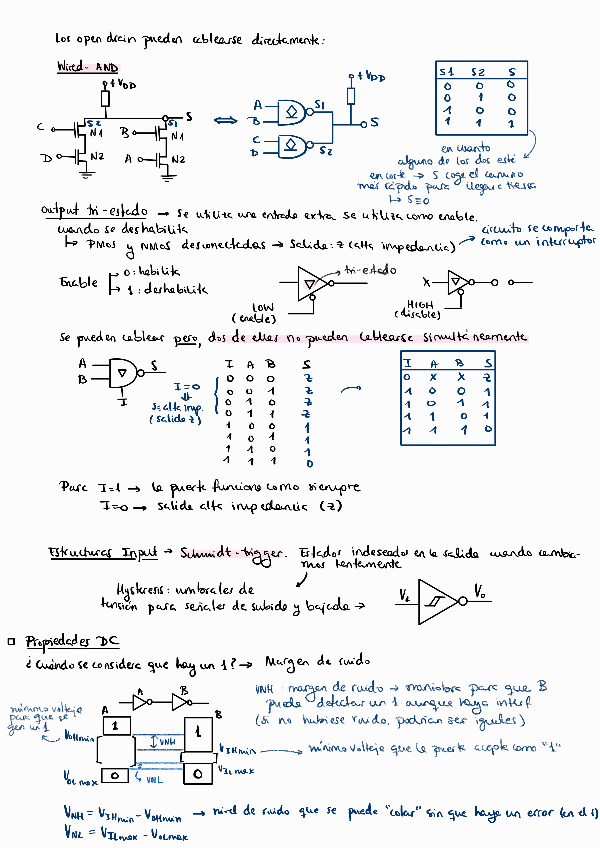 Los open drain pueden cablearse directamente:
Wired-AND
+VDD
S2 S1 S
C N1 B N1
D N2 A N2
+VDD
A S1
B
S
C
D S2
S1 S2 S
0 0 0
0 1 0
1 0 0
1 1 1
en cuanto
alguno de los dos esté
en corte → S coge el camino
más rápido para llegar a tierra
↳ S=0
Output tri-estado → se utiliza una entrada extra se utiliza como enable.
cuando se deshabilita
↳ PMOS y NMOS desconectados → Salida: Z (alta impedancia)
circuito se comporta
como un interruptor
Enable 0: habilita
1: deshabilita
tri-estado
LOW
(enable)
X
HIGH
(disable)
Se pueden cablear pero, dos de ellas no pueden cablearse simultáneamente
A S
B
I
I=0
⇓
S=alta imp.
(salida z)
I A B S
0 0 0 Z
0 0 1 Z
0 1 0 Z
0 1 1 Z
1 0 0 1
1 0 1 1
1 1 0 1
1 1 1 0
I A B S
0 X X Z
1 0 0 1
1 0 1 1
1 1 0 1
1 1 1 0
Para I=1 → la puerta funciona como siempre
I=0 → salida alta impedancia (Z)
Estructuras Input → Schmidt-trigger. Estados indeseados en la salida cuando cambia-
mos lentamente
Hysteresis: umbrales de
tensión para señales de subida y bajada →
V1 V0
Propiedades DC
¿Cuándo se considera que hay un 1? → Margen de ruido
mínimo voltaje
para que se
gen un 1
A B
A B
1 1
VOHmin VNH VIHmin
VOLmax 0 VNL 0 VILmax
VNH: margen de ruido → maniobra para que B
puede detectar un 1 aunque haya interf.
(si no hubiese ruido, podrían ser iguales)
mínimo voltaje que la puerta acepta como "1"
VNH = VIHmin - VOHmin → nivel de ruido que se puede "colar" sin que haya un error (en el 1)
VNL = VILmax - VOLmax